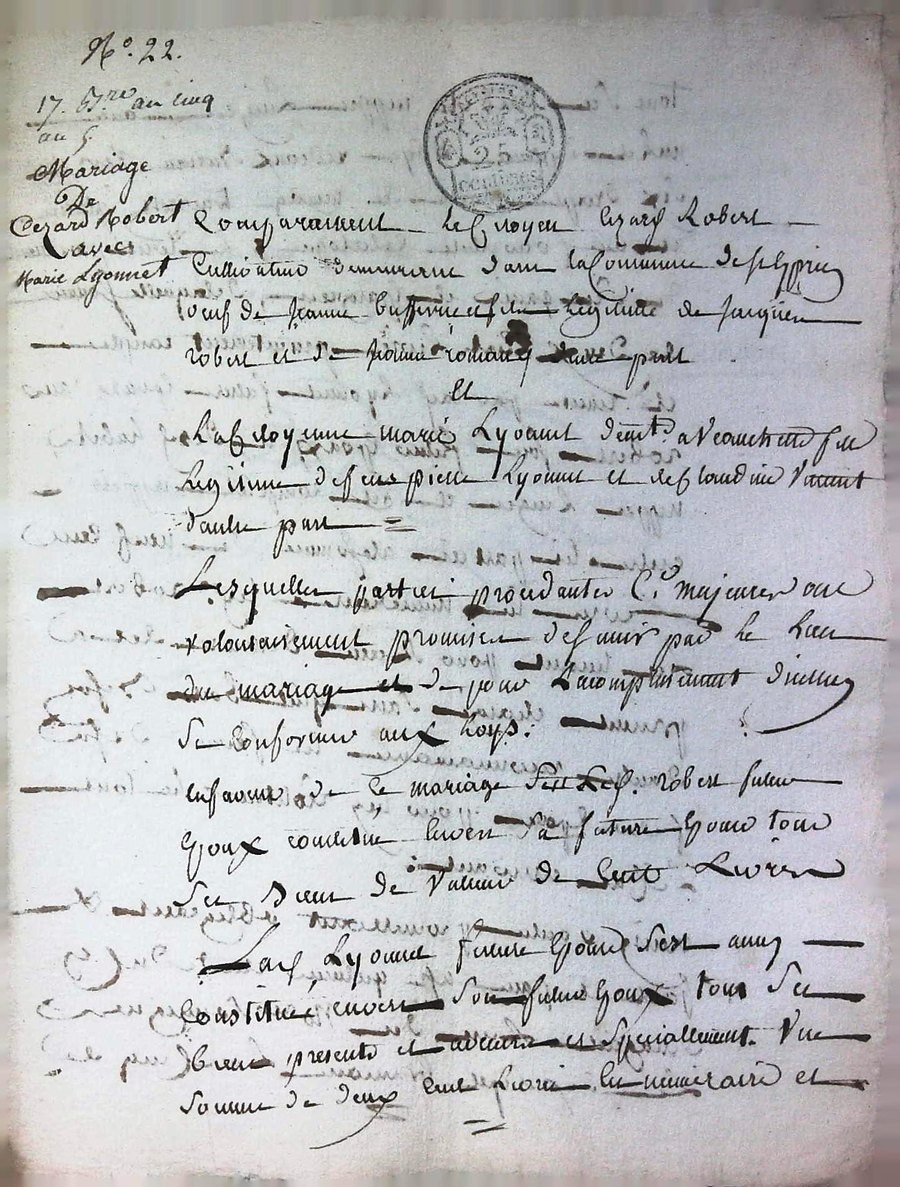 N.° 22.
17. 
an 5
Mariage
De
Cezard Robert
avec
Marie Lyonnet
25
centimes
Comparurent Le Citoyen Cezard Robert
Cultivateur demeurant dans la Commune de
veuf de Jeanne et fils Legitime de Jacques
robert et de d'une part
Et
La Citoyenne marie Lyonnet demt. a Veauchette fille
Legitime de feu pierre Lyonnet et de Claudine Vincent
d'autre part
Lesquelles parties procedantes C.e majeures ont
volontairement promises de s'unir par le Lien
du mariage et de pour L'acomplissement d'icelluy
Se Conformer aux Loys.
En faveur de ce mariage robert futur
Epoux constitue envers Sa future Epouse tous
Ses Biens de Valeur de Cent Livres
La Lyonnet future Epouse S'est aussy
Constitué envers Son futur Epoux tous Ses
biens presents et avenirs et Specialement. Une
Somme de deux Cent Livres En numeraire et